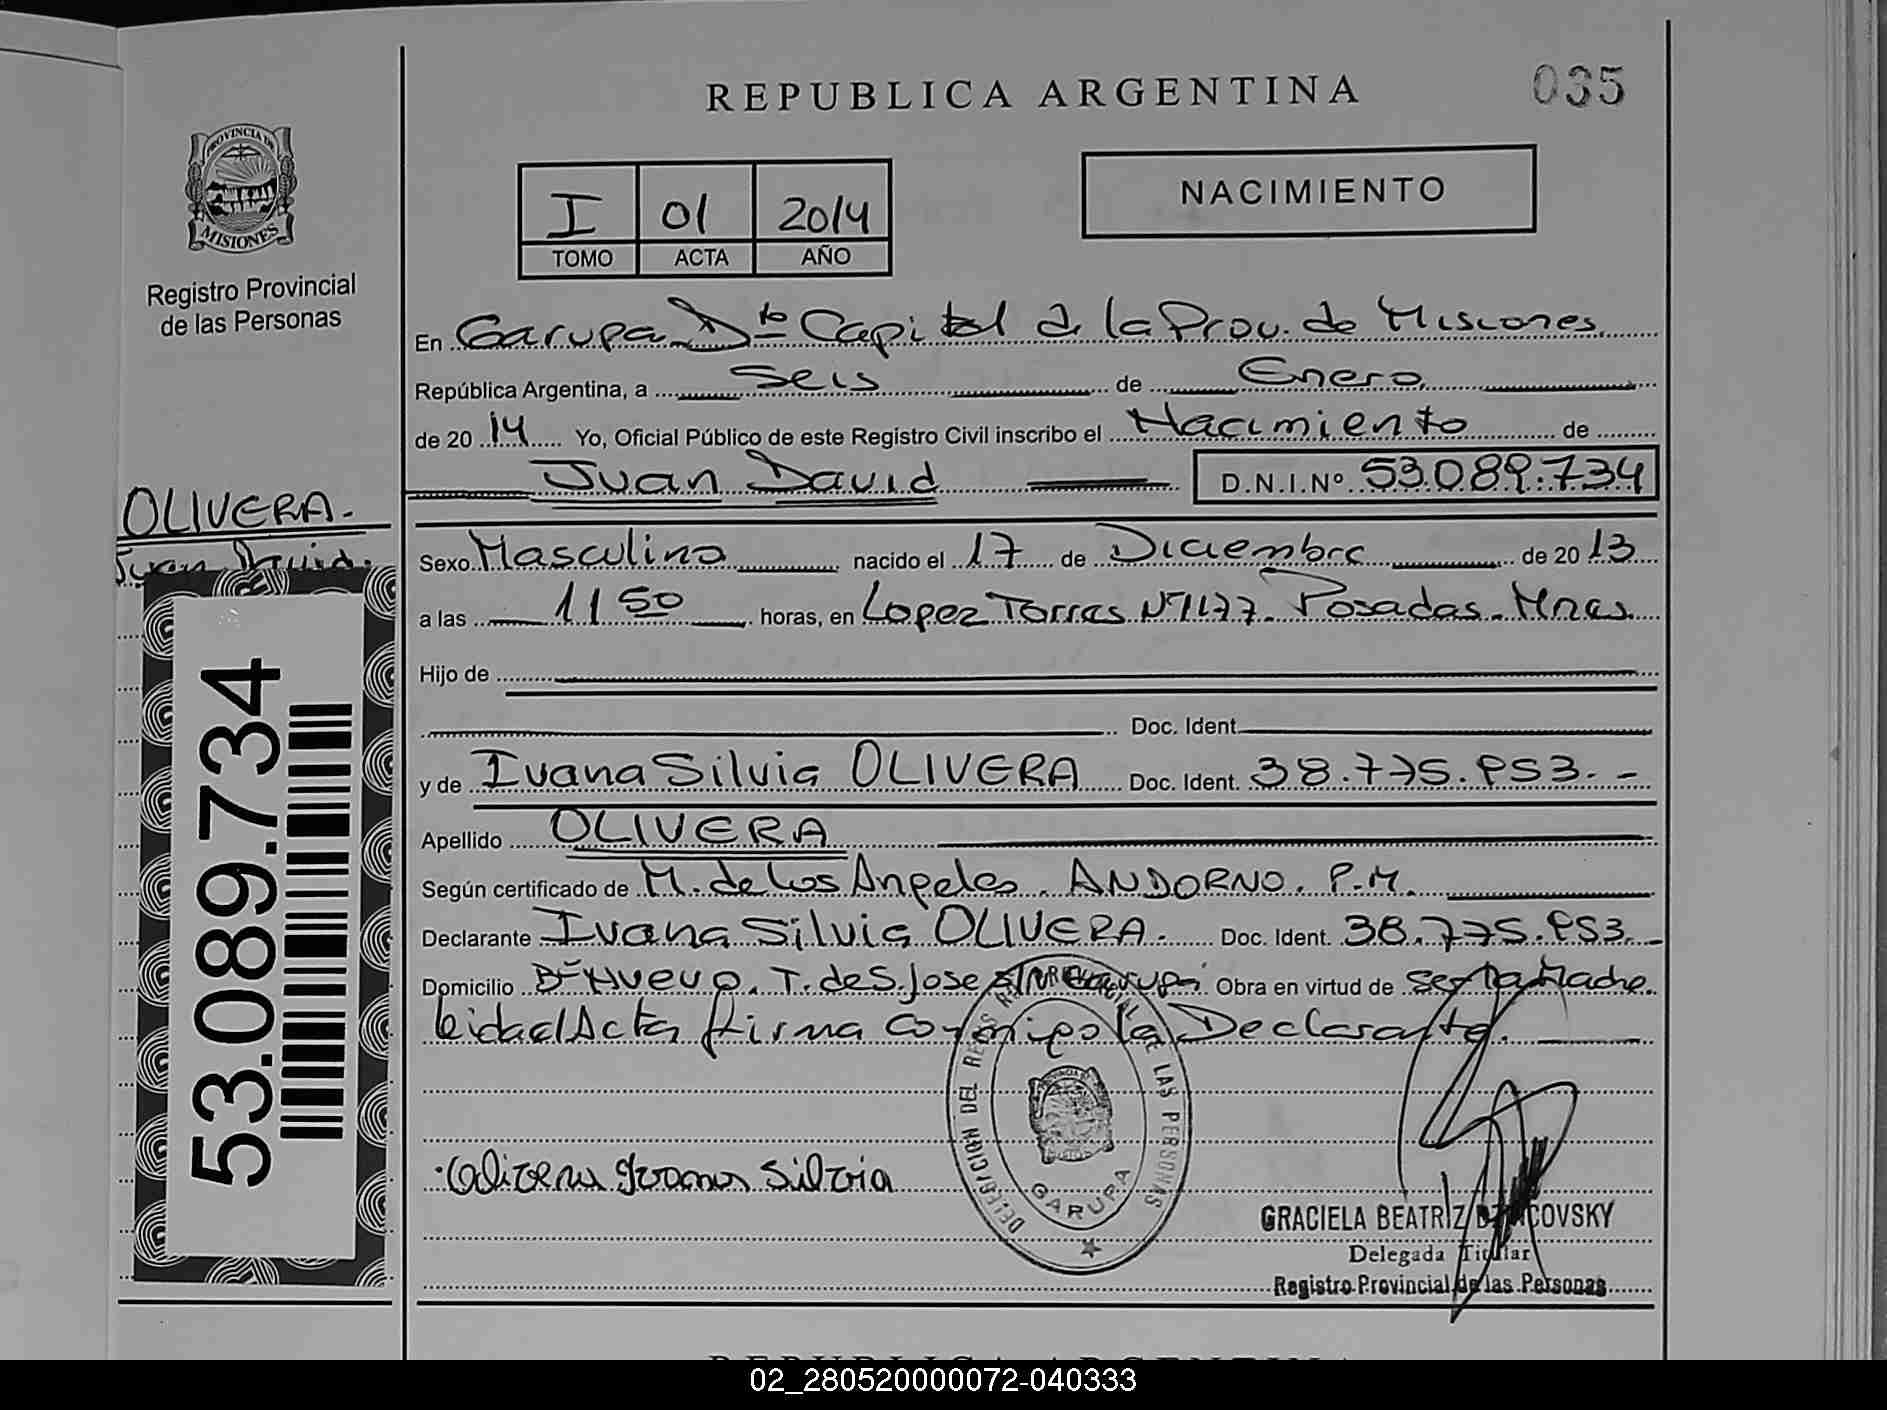 REPUBLICA ARGENTINA
035
PROVINCIA DE
MISIONES
Registro Provincial
de las Personas
I 01 2014
TOMO ACTA AÑO
NACIMIENTO
En Garupa Dto Capital de la Prov. de Misiones
República Argentina, a Seis de Enero
de 2014 Yo, Oficial Público de este Registro Civil inscribo el Nacimiento de
Juan David D.N.I.Nº 53.089.734
OLIVERA.-
Juan David.
Sexo Masculino nacido el 17 de Diciembre de 2013
a las 11 50 horas, en Lopez Torres Nº1177. Posadas. Mnes.
Hijo de
Doc. Ident.
y de Ivana Silvia OLIVERA Doc. Ident. 38.775.953.-
Apellido OLIVERA
Según certificado de M. de los Angeles. ANDORNO. P.M.
Declarante Ivana Silvia OLIVERA.- Doc. Ident. 38.775.953.-
Domicilio Bº Nuevo. T. de S. Jose S/N Garupá Obra en virtud de ser la Madre.
leida el Acta firma conmigo la Declarante.
53.089.734
Olivera Ivana Silvia
DELEGACION DEL REGISTRO PROVINCIAL DE LAS PERSONAS
GARUPA
GRACIELA BEATRIZ
Delegada Titular
Registro Provincial de las Personas
REPUBLICA ARGENTINA
02_280520000072-040333